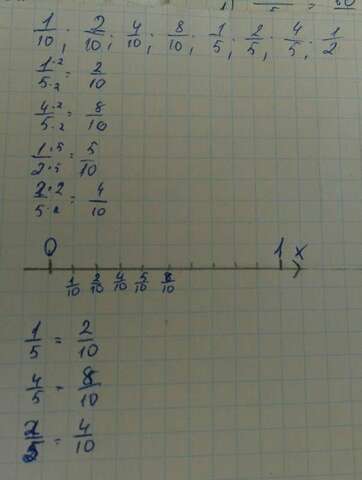 1/10; 2/10; 4/10; 8/10; 1/5; 2/5; 4/5; 1/2
1·2/5·2 = 2/10
4·2/5·2 = 8/10
1·5/2·5 = 5/10
2·2/5·2 = 4/10
0 1 x
1/10 2/10 4/10 5/10 8/10
1/5 = 2/10
4/5 = 8/10
2/5 = 4/10